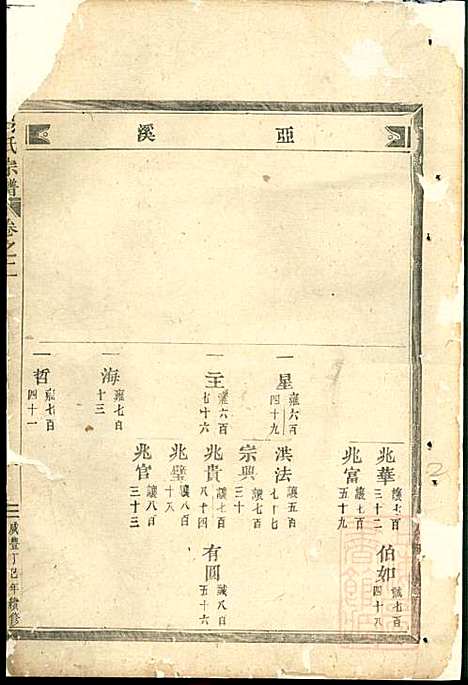 亞溪
兆華
讓七百
三十二
伯如
誠七百
四十八
兆富
讓七百
五十九
一星
雍六百
四十九
洪法
讓五百
七十七
宗興
讓七百
三十
一主
雍六百
七十六
兆貴
讓七百
八十四
有圓
誠八百
五十六
兆璧
讓八百
十八
兆官
讓八百
三十三
一海
雍七百
十三
一哲
雍七百
四十一
氏宗譜
卷之二
咸豐丁巳年續修
2